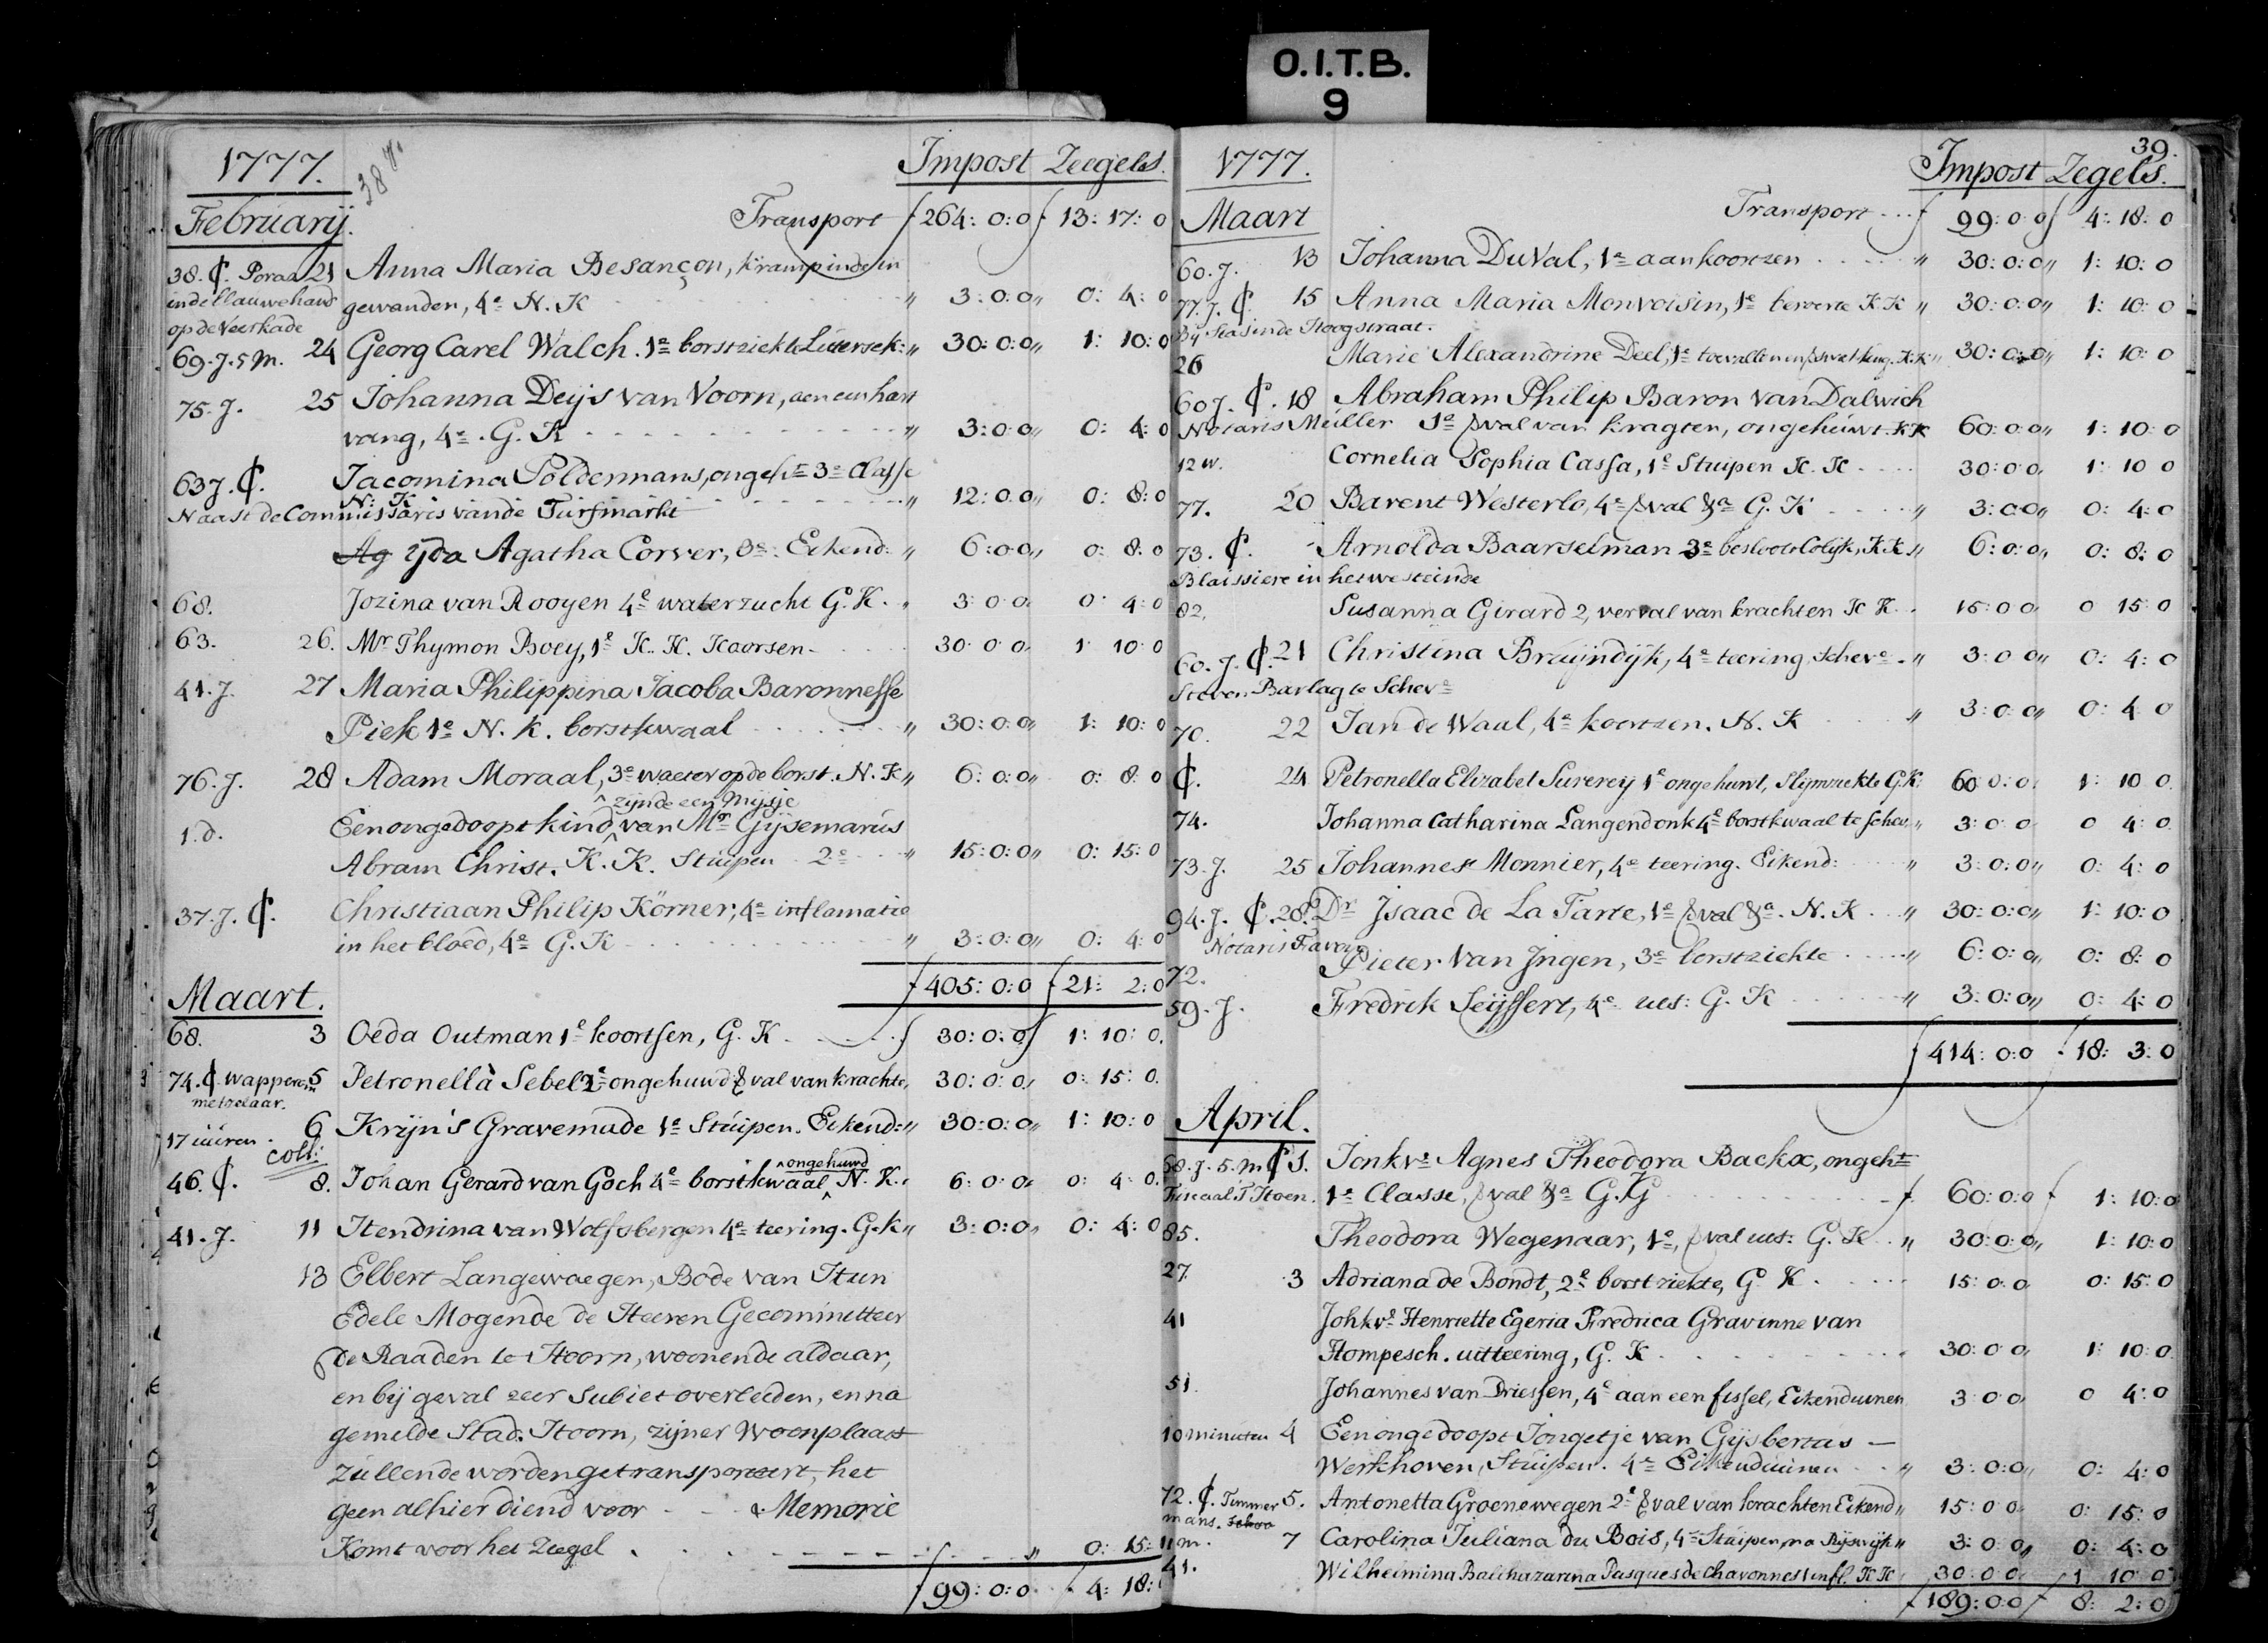 O.I.T.B.
9
1777.
Impost Zeegels.
Februarij.
Transport f 264:0:0 f 13:17:0
38. ₵. Poraa 21 Anna Maria Besançon, kramp in de in
in de Blauwehand gewanden, 4e N. K " 3:0:0 " 0:4:0
op de Veerkade
69. J. 5 m. 24 Georg Carel Walch. 1e borstziekte Lutersek: " 30:0:0 " 1:10:0
75. J. 25 Johanna Deijs van Voorn, aen een hart
vang, 4e. G. K " 3:0:0 " 0:4:0
63 J. ₵. Jacomina Poldermans, ongeht 3e Classe
N: K " 12:0:0 " 0:8:0
Naast de Commissaris van de Turfmarkt
Ag ijda Agatha Corver, 3e. Eikend: " 6:0:0 " 0:8:0
68. Jozina van Rooyen 4e waterzucht G. K. " 3:0:0 0:4:0
63. 26. Mr Thymon Boey, 1e K. K. Koorsen 30:0:0 1:10:0
41. J. 27 Maria Philippina Jacoba Baronnesse
Piek 1e N. K. borstkwaal " 30:0:0 " 1:10:0
76. J. 28 Adam Moraal, 3e waeter op de borst. N. K " 6:0:0 " 0:8:0
zijnde een Mijsje
1. d. Een ongedoopt kind van Mr Gijsemarus
Abram Christ. K. K. Stuipen 2e " 15:0:0 " 0:15:0
37. J. ₵. Christiaan Philip Körner, 4e inflamatie
in het bloed, 4e G. K " 3:0:0 " 0:4:0
f 405:0:0 f 21:2:0
Maart.
68. 3 Oeda Outman 1e koortsen, G. K f 30:0:0 f 1:10:0.
74. ₵. Wapperom 5 Petronella Sebel 2e ongehuwd & val van krachte, 30:0:0 0:15:0.
metselaar.
17 uuren. 6 Krijn's Gravemade 1e Stuipen. Eikend: " 30:0:0 " 1:10:0
coll: ongehuwd
46. ₵. 8. Johan Gerard van Goch 4e borstkwaal N. K. " 6:0:0 0:4:0.
41. J. 11 Hendrina van Wolfsbergen 4e teering. G. K " 3:0:0 " 0:4:0
13 Elbert Langewaegen, Bode van Hun
Edele Mogende de Heeren Gecommitteer
de Raaden te Hoorn, woonende aldaar,
en bij geval zeer Subiet overleeden, en na
gemelde Stad. Hoorn, zijner Woonplaats
zullende worden getransporteert, het
geen alhier diend voor Memorie
Komt voor het Zeegel " 0:15:
f 99:0:0 f 4:18:
39.
1777.
Impost Zegels.
Maart
Transport f 99:0:0 f 4:18:0
60. J. 13 Johanna Du Val, 1e aan koortzen " 30:0:0 " 1:10:0
77. J. ₵. 15 Anna Maria Monvoisin, 1e beroerte K K " 30:0:0 " 1:10:0
Bij Stas in de Hoogstraat.
26 Marie Alexandrine Deel, 1e toevallen en zwakking. K. K " 30:0:0 " 1:10:0
60 J. ₵. 18 Abraham Philip Baron van Dalwich
Notaris Muller 1e & val van kragten, ongehuwt. K K 60:0:0 " 1:10:0
12 w. Cornelia Sophia Cassa, 1e Stuipen K. K 30:0:0 1:10:0
77. 20 Barent Westerlo, 4e & val &a G. K " 3:0:0 " 0:4:0
73. ₵. Arnolda Baarselman 3e beslooten Colijk, K K " 6:0:0 " 0:8:0
Blaissiere in het westeinde
82. Susanna Girard 2, verval van krachten K K 15:0:0 0 15:0
60. J. ₵. 21 Christina Bruijndijk, 4e teering Scheve. " 3:0:0 " 0:4:0
Steven Barlag te Scheve
70. 22 Jan de Waal, 4e koortzen. N. K " 3:0:0 " 0:4:0
₵. 24 Petronella Elizabet Surerey 1e ongehuwt, Slijmziekte G. K: 60:0:0 1:10:0.
74. Johanna Catharina Langendonk 4e borstkwaal te schev. " 3:0:0 0 4:0
73. J. 25 Johannes Monnier, 4e teering. Eikend: " 3:0:0 " 0:4:0
94. J. ₵. 28. Dr Isaac de La Tarte, 1e & val &a. N. K " 30:0:0 " 1:10:0
Notaris Favon
72. Pieter van Ingen, 3e borstziekte " 6:0:0 " 0:8:0
59. J. Fredrik Seijffert, 4e ues: G. K " 3:0:0 " 0:4:0
f 414:0:0 f 18:3:0
April.
68. J. 5. m. ₵ 1. Jonkvr Agnes Theodora Backx, ongeht
Fiscaal 'T Hoen. 1e Classe, & val &a G. K f 60:0:0 f 1:10:0
85. Theodora Wegenaar, 1e, & val ues: G. K " 30:0:0 " 1:10:0
27. 3 Adriana de Bondt, 2e borstziekte, G. K. 15:0:0 0:15:0
41 Johkvr Henriette Egeria Fredrica Gravinne van
Hompesch. uitteering, G. K 30:0:0 1:10:0.
51. Johannes van Driessen, 4e aan een fissel, Eikenduinen 3:0:0 0 4:0
10 minuten 4 Een ongedoopt Jongetje van Gijsbertus
Werkhoven, Stuipen. 4e Eikenduinen " 3:0:0 " 0:4:0
72. ₵. Timmer 5. Antonetta Groenewegen 2e & val van krachten Eikend " 15:0:0 0:15:0
mans.
11 m. 7 Carolina Juliana du Bois, 4e Stuipen, na Rijswijk " 3:0:0 " 0:4:0
41. Wilhelmina Balthazarina Pasques de Chavonnes 1 infl. K K 30:0:0 1 10:0
f 189:0:0 f 8:2:0